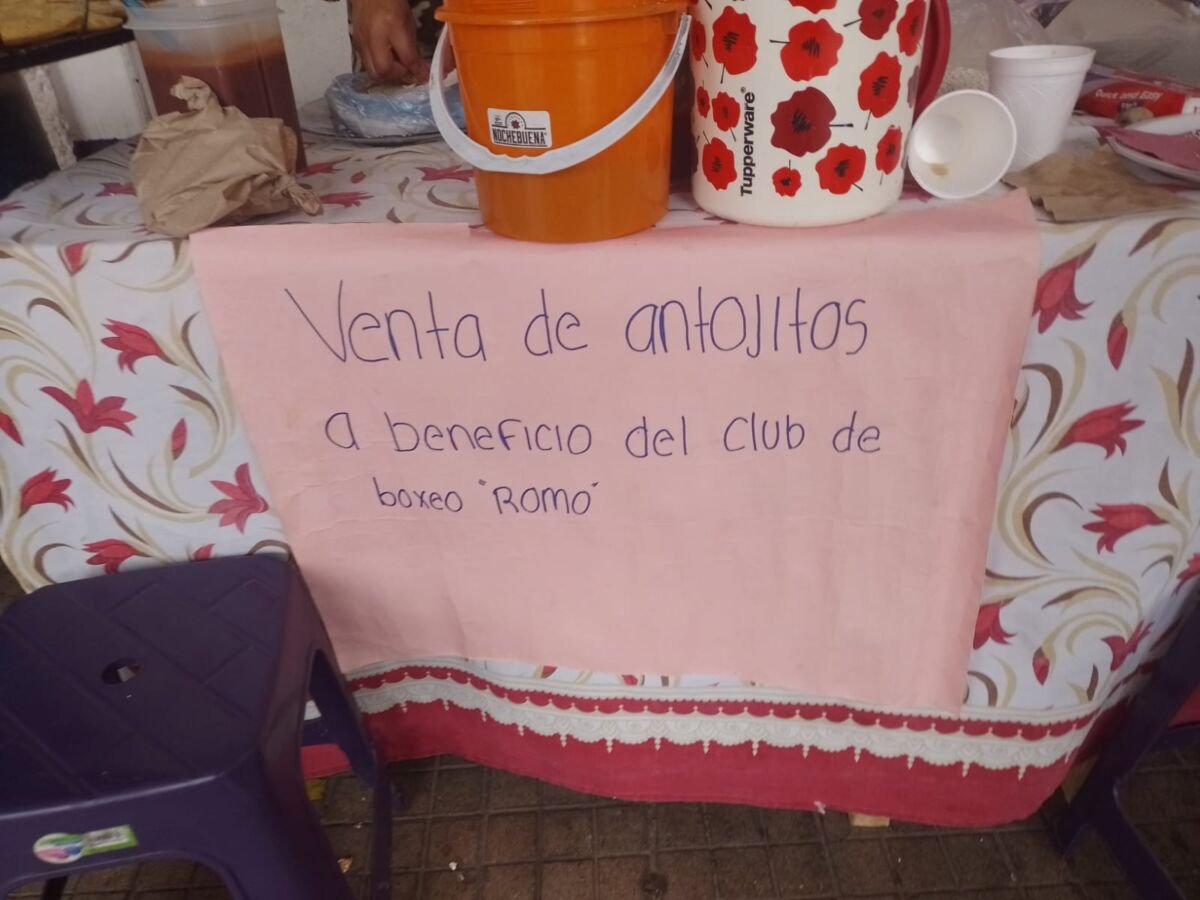 NOCHEBUENA
Tupperware®
Quick and Easy
Venta de antojitos
a beneficio del club de
boxeo "ROMO"